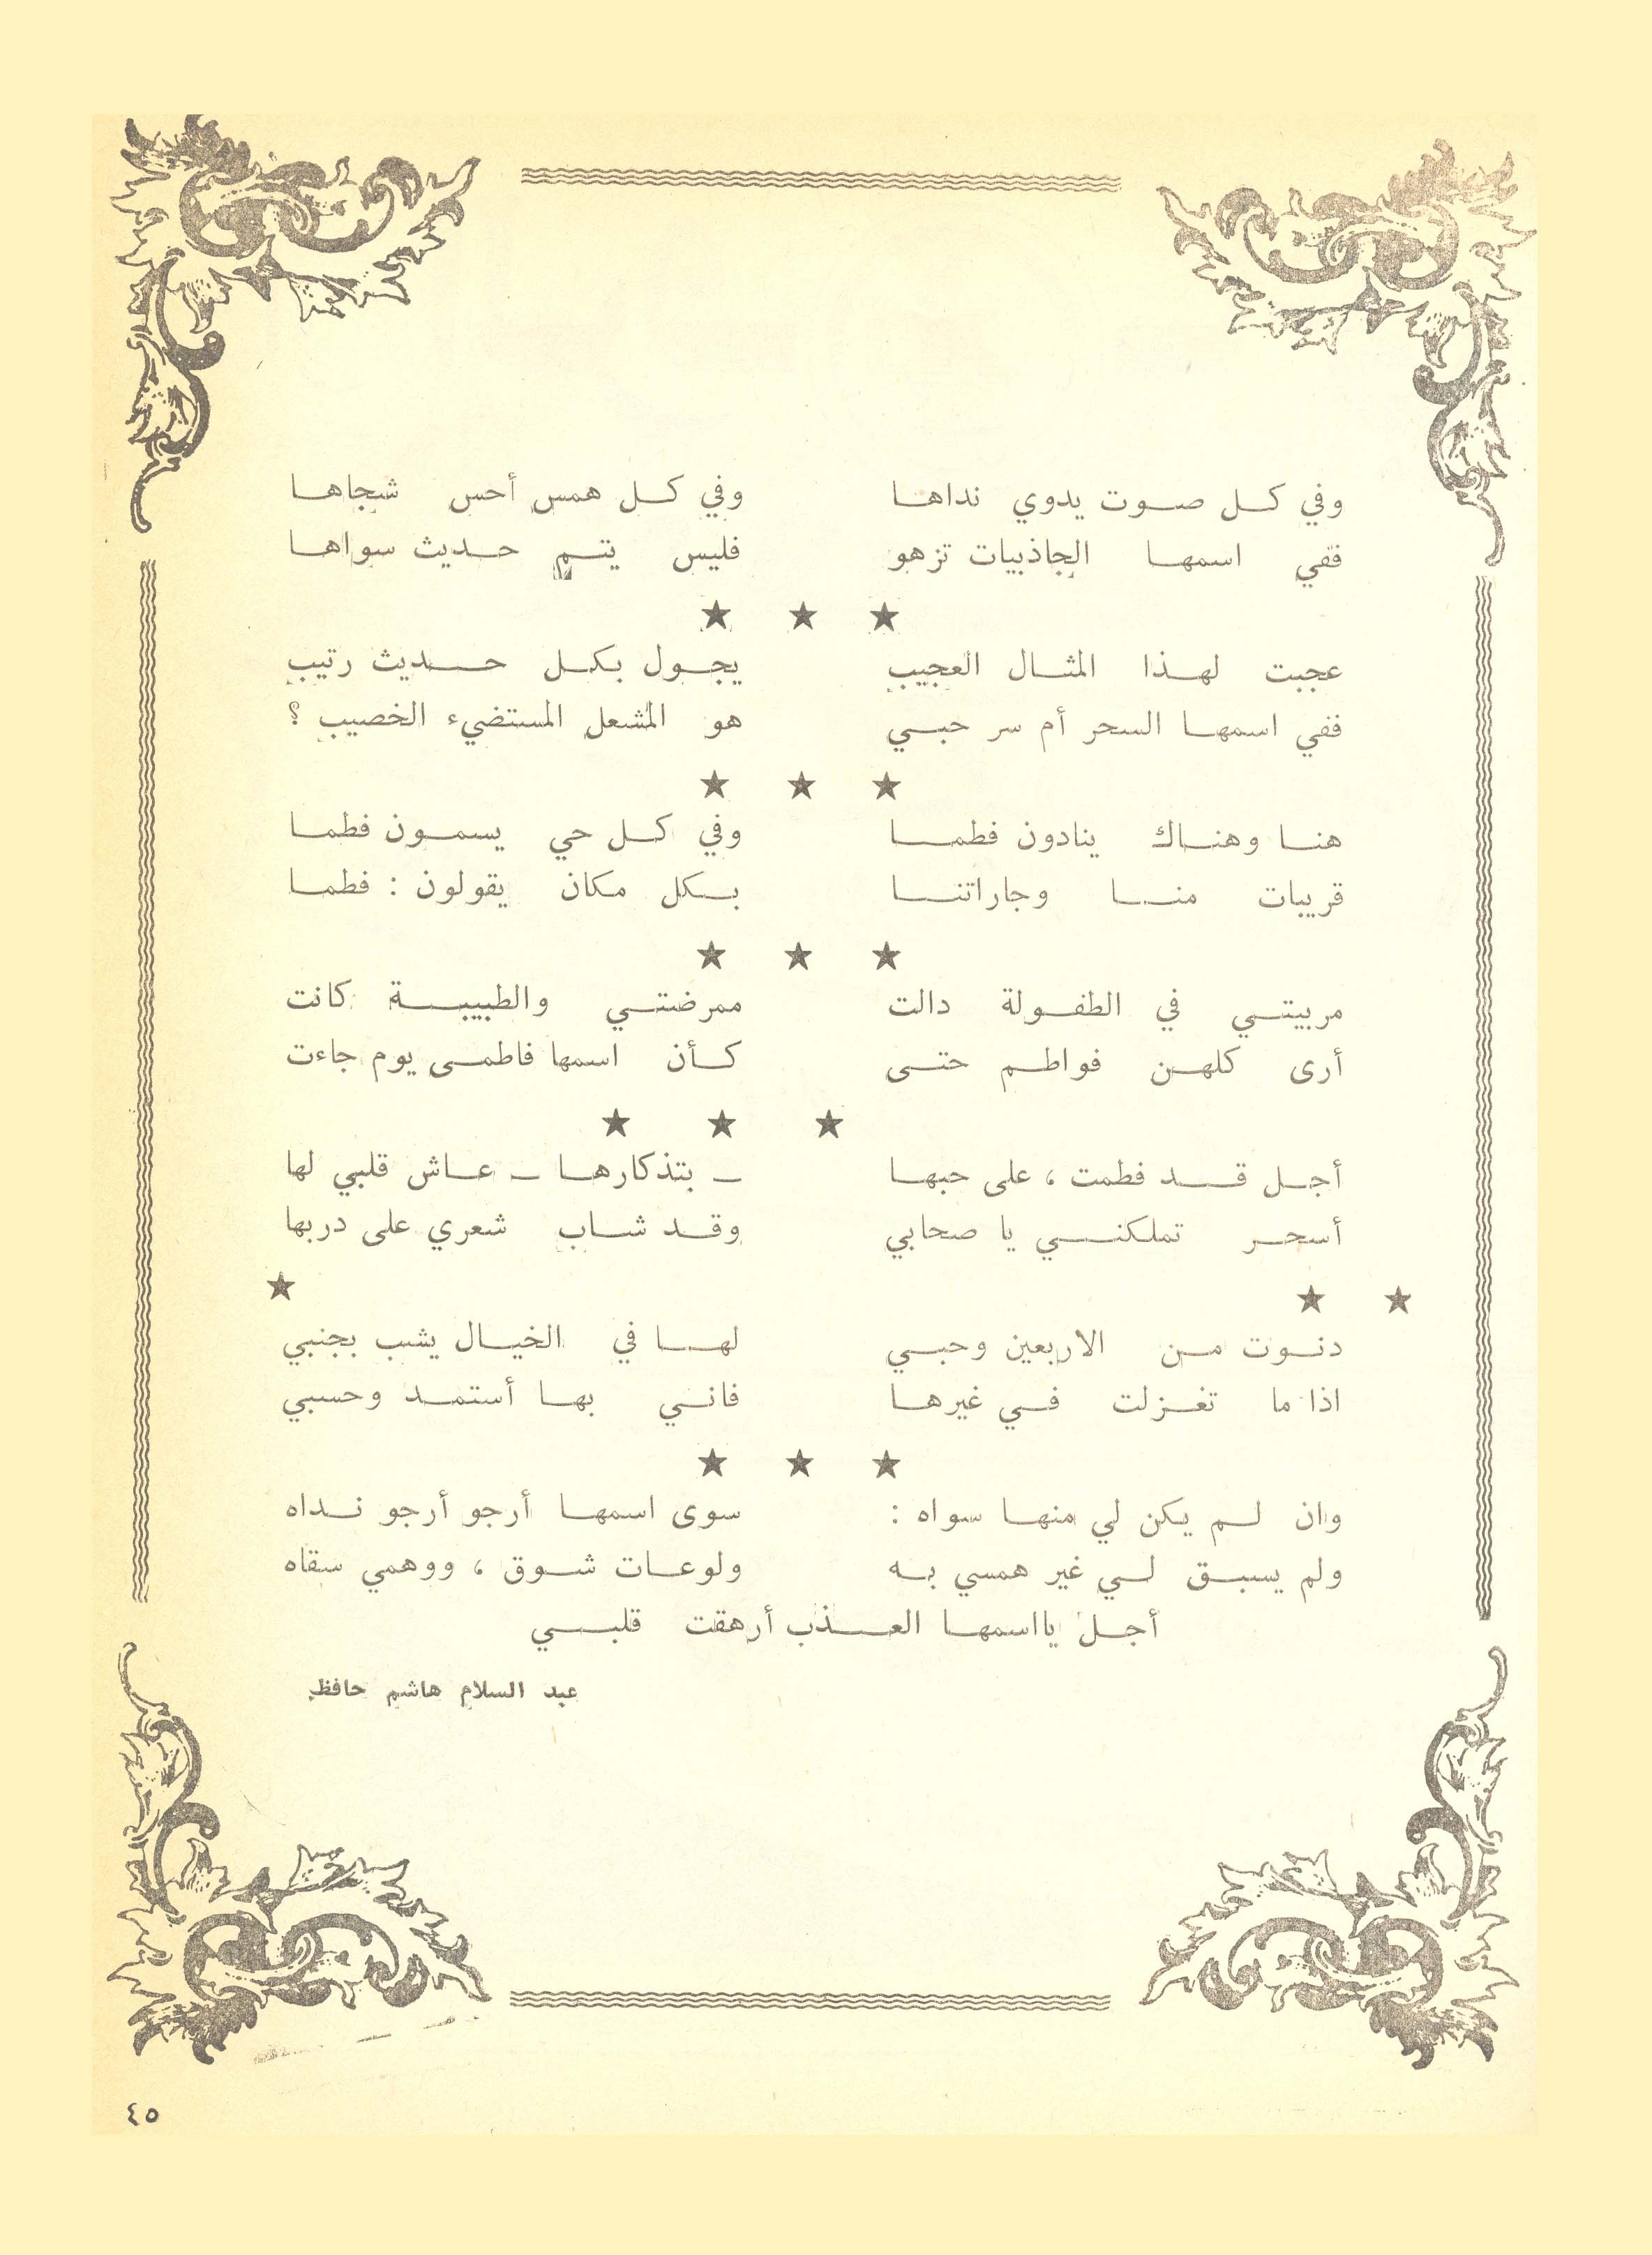 وفي كل صوت يدوي نداها وفي كل همس أحس شجاها
ففي اسمها الجاذبيات تزهو فليس يتم حديث سواها
★ ★ ★
عجبت لهذا المثال العجيب يجول بكل حديث رتيب
ففي اسمها السحر أم سر حبي هو المشعل المستضيء الخصيب ؟
★ ★ ★
هنا وهناك ينادون فطما وفي كل حي يسمون فطما
قريبات منا وجاراتنا بكل مكان يقولون : فطما
★ ★ ★
مربيتي في الطفولة دالت ممرضتي والطبيبة كانت
أرى كلهن فواطم حتى كأن اسمها فاطمى يوم جاءت
★ ★ ★
أجل قد فطمت ، على حبها ـ بتذكارها ـ عاش قلبي لها
أسحر تملكني يا صحابي وقد شاب شعري على دربها
★ ★ ★
دنوت من الاربعين وحبي لها في الخيال يشب بجنبي
اذا ما تغزلت في غيرها فاني بها أستمد وحسبي
★ ★ ★
وان لم يكن لي منها سواه : سوى اسمها أرجو أرجو نداه
ولم يسبق لي غير همسي به ولوعات شوق ، ووهمي سقاه
أجل يااسمها العذب أرهقت قلبي
عبد السلام هاشم حافظ
٤٥